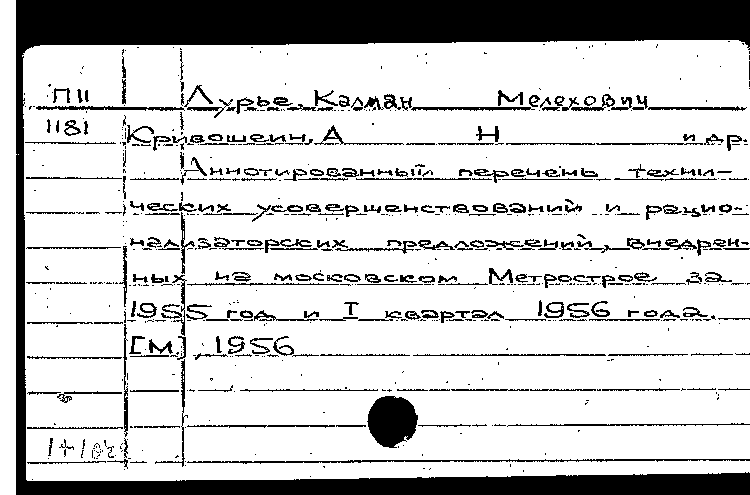 П11 Лурье, Калман Мелехович
1181 Кривошеин, А Н и др.
Аннотированный перечень техни-
ческих усовершенствований и рацио-
нализаторских предложений, внедрен-
ных на московском Метрострое за
1955 год и I квартал 1956 года.
[М.], 1956